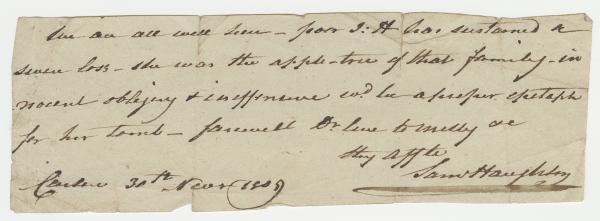 We are all well here – poor J: H has sustained a
severe loss – she was the apple-tree of that family – in
nocent obliging & inoffensive wd. be a proper epitaph
for her tomb – farewell Dr love to Melly &c
thy affte
Saml Haughton
Carlow 30th Novr (1805)